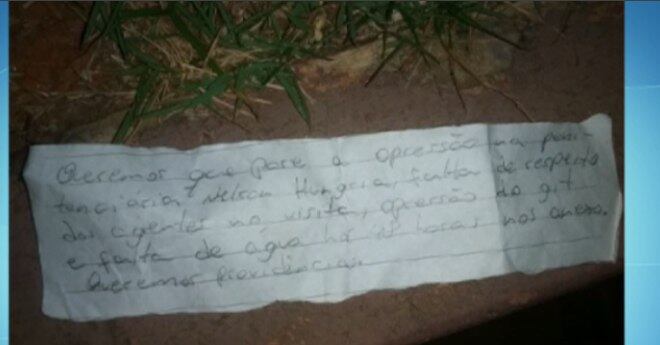 Queremos que pare a opressão na peni-
tenciaria Nelson Hungria, falta de respeito
dos agentes na visita, opressão do git
e falta de água há horas nos anexo.
Queremos providências.